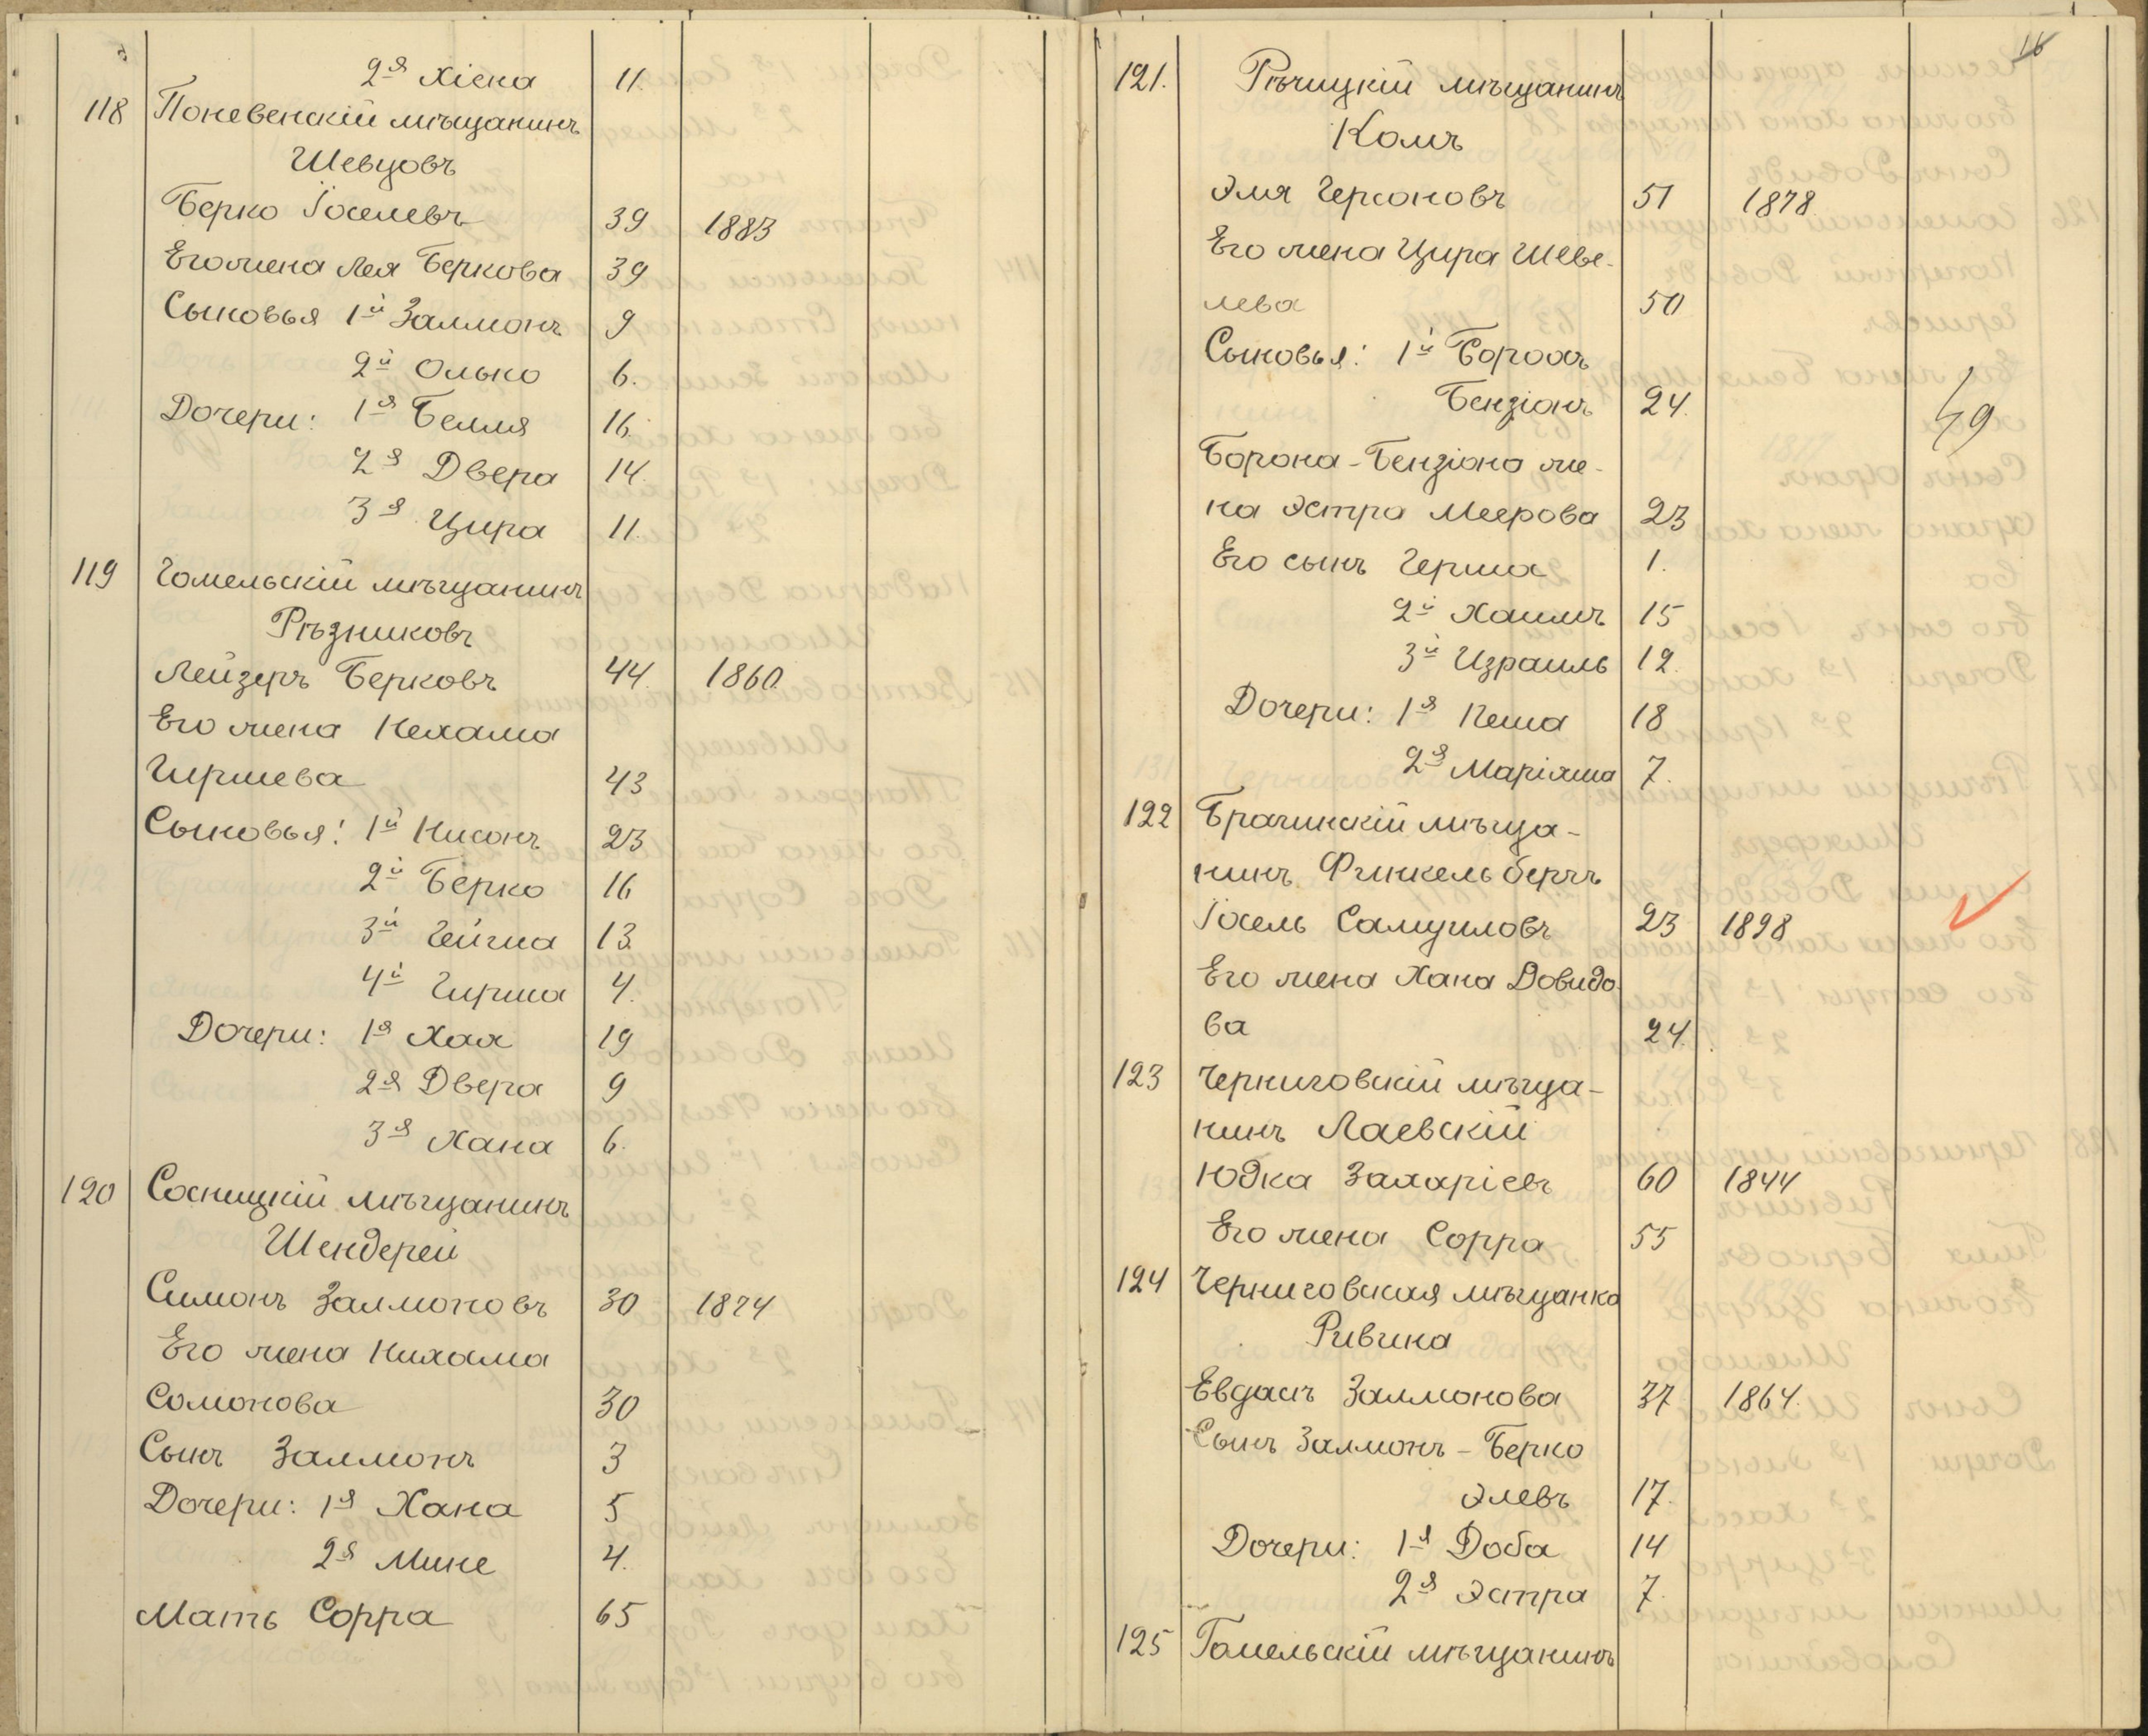 2я Хіена 11.
118 Поневенскій мѣщанинъ
Шевцовъ
Берко Іоселевъ 39 1883
Его жена Лея Беркова 39
Сыновья 1й Залмонъ 9
2й Олько 6.
Дочери: 1я Белля 16.
2я Двера 14.
3я Цира 11.
119 Гомельскій мѣщанинъ
Рѣзниковъ
Лейзеръ Берковъ 44. 1860.
Его жена Нехама
Гиршева 43
Сыновья: 1й Нисонъ 23
2й Берко 16
3й Гейгма 13.
4й Гирша 4.
Дочери: 1я Хая 19
2я Двера 9
3я Хана 6.
120 Сосницкій мѣщанинъ
Шендерей
Симонъ Залмоновъ 30 1874
Его жена Нихама
Сомонова 30
Сынъ Залмонъ 3
Дочери: 1я Хана 5
2я Мине 4.
Мать Сорра 65
16
121. Рѣчицкій мѣщанинъ
Комъ
Эля Герсоновъ 51 1878
Его жена Цира Шеве-
лева 50
Сыновья: 1й Борохъ
Бензіонъ 24.
49
Борона-Бензіона же-
на Эстра Меерова 23
Его сынъ Герша 1.
2й Хаимъ 15
3й Израиль 12.
Дочери: 1я Пеша 18
2я Маріяша 7.
122 Брагинскій мѣща-
нинъ Финкельбергъ
Іосель Самуиловъ 23 1898
Его жена Хана Довидо-
ва 24.
123 Черниговскій мѣща-
нинъ Лаевскій
Юдка Захаріевъ 60 1844
Его жена Сорра 55
124 Черниговская мѣщанка
Ривина
Евдась Залмонова 37 1864.
Сынъ Залмонъ-Берко
Элевъ 17.
Дочери: 1я Доба 14
2я Эстра 7.
125 Гомельскій мѣщанинъ